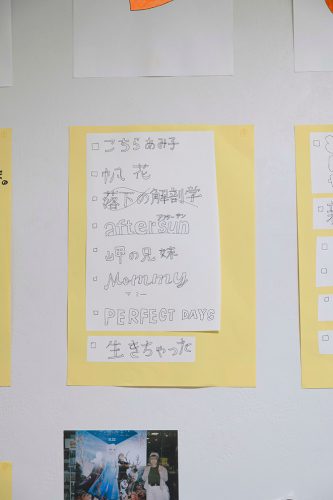 □ こちらあみ子
□ 帆花
□ 落下の解剖学
アフターサン
□ aftersun
□ 岬の兄妹
□ Mommy
マミー
□ PERFECT DAYS
□ 生きちゃった